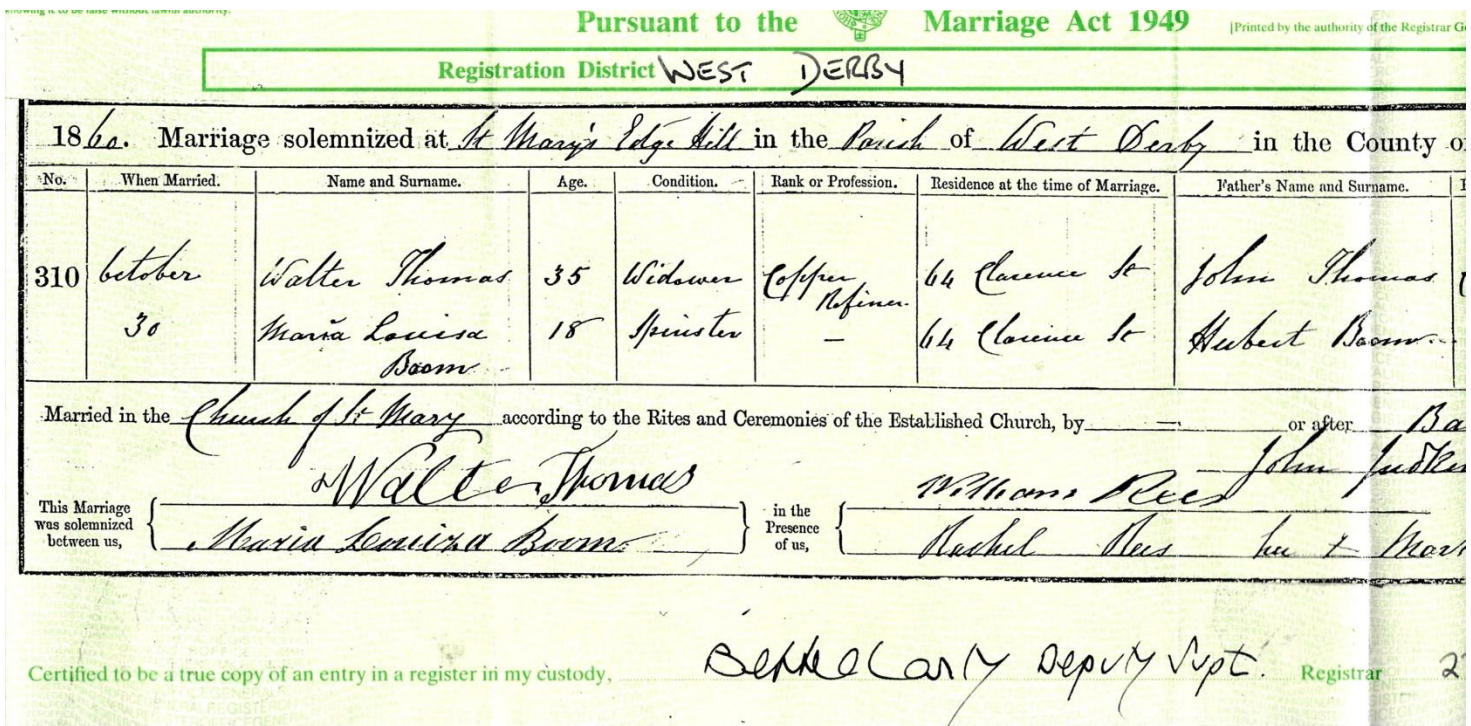 knowing it to be false without lawful authority.
Pursuant to the Marriage Act 1949 [Printed by the authority of the Registrar Ge
Registration District WEST DERBY
1860. Marriage solemnized at St Mary's Edge Hill in the Parish of West Derby in the County o
No. When Married. Name and Surname. Age. Condition. Rank or Profession. Residence at the time of Marriage. Father's Name and Surname.
310 October Walter Thomas 35 Widower Copper Refiner 64 Clarence St John Thomas
30 Maria Louisa Boom 18 Spinster — 64 Clarence St Hubert Boom
Married in the Church of St Mary according to the Rites and Ceremonies of the Established Church, by — or after Ba
John
This Marriage was solemnized between us, Walter Thomas in the Presence of us, William Rees
Maria Louiza Boom Rachel Rees her X Mark
Certified to be a true copy of an entry in a register in my custody, Deputy Supt. Registrar 2